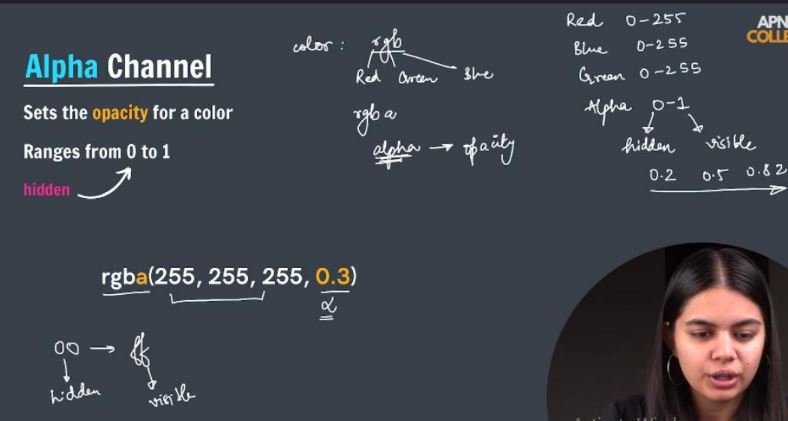 Alpha Channel
Sets the opacity for a color
Ranges from 0 to 1
hidden
color : rgb
Red Green Blue
rgba
alpha → opacity
Red 0-255
Blue 0-255
Green 0-255
Alpha 0-1
hidden visible
0.2 0.5 0.82
APN
COLLE
rgba(255, 255, 255, 0.3)
α
00 → ff
hidden visible